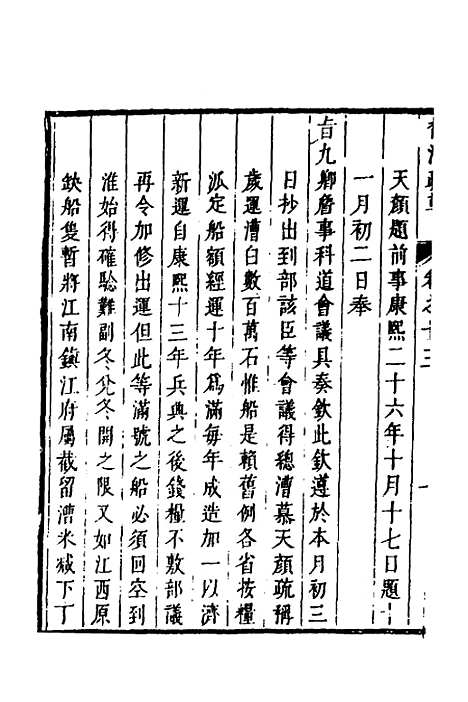 天顏題前事康熙二十六年十月十七日題
一月初二日奉
旨九卿詹事科道會議具奏欽此欽遵於本月初三
日抄出到部該臣等會議得總漕慕天顏疏稱
歲運漕白數百萬石惟船是賴舊例各省按糧
派定船額經運十年為滿每年成造加一以濟
新運自康熙十三年兵興之後錢糧不敷部議
再令加修出運但此等滿號之船必須回空到
淮始得確驗難副冬兌冬開之限又如江西原
缺船隻暫將江南鎮江府屬截留漕米減下丁